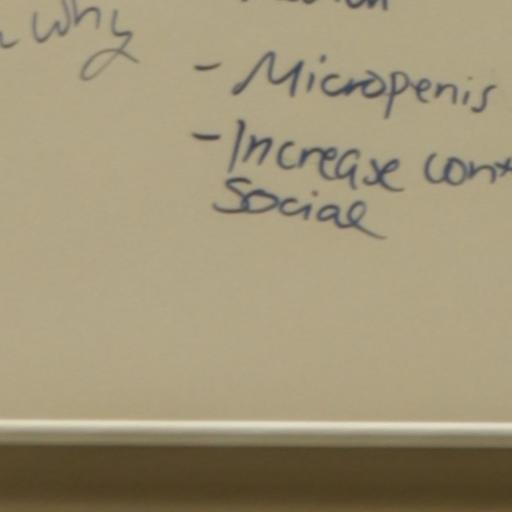 why
- Micropenis
- Increase
social